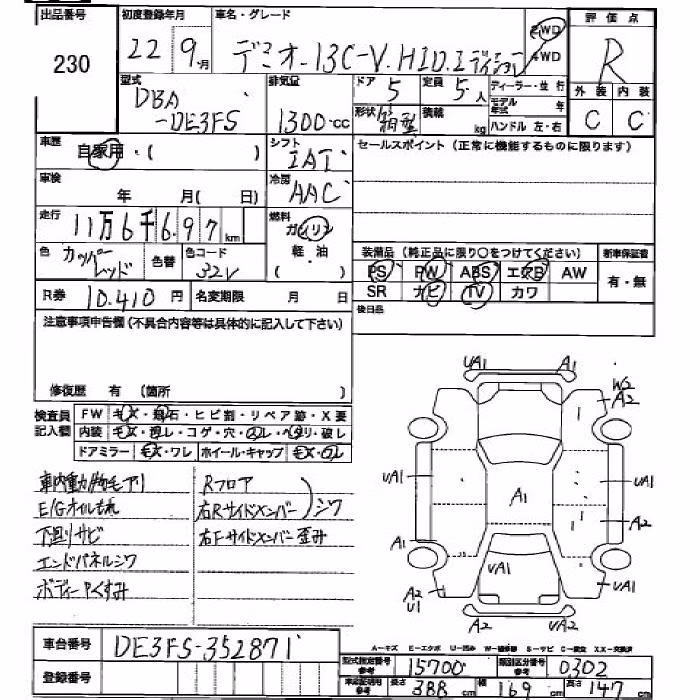 出品番号 初度登録年月 車名・グレード 評価点
230 22年9月 デミオ 13C-V.HID.エディション 2WD 4WD R
型式 排気量 ドア 5 定員 5人 ディーラー・並行
DBA モデル年式 年 外装 内装
-DE3FS 1300cc 形状 箱型 積載 kg ハンドル 左・右 C C
車歴 自家用・( ) シフト IAT セールスポイント(正常に機能するものに限ります)
車検 年 月( 日) 冷房 AAC
走行 11万6千6.9 7 km 燃料 ガソリン
色 カッパーレッド 色替 色コード 32V 軽・油 ( )
装備品(純正品に限り○をつけてください) 新車保証書
PS PW ABS エアB AW 有・無
SR ナビ TV カワ
R券 10.410円 名変期限 月 日 後日品
注意事項申告欄(不具合内容等は具体的に記入して下さい)
修復歴 有 (箇所 )
検査員記入欄 FW キズ・飛石・ヒビ割・リペア跡・X要
内装 キズ・
ドアミラー キズ・ワレ ホイール・キャップ キズ・ワレ
車内 Rフロア
E/Gオイルもれ 右Rサイドメンバー シワ
下廻りサビ 右Fサイドメンバー歪み
エンドパネルシワ
ボディーヤくすみ
UA1 A1
W2
A2
UA1 UA1
A1
A1 A2
VA1 UA1
A2
U1
A2 UA2
車台番号 DE3FS-352871
A-キズ E-エクボ U-凹み W-補修跡 S-サビ C-腐食 XX-交換済
登録番号 型式指定番号 参考 15700 類別区分番号 参考 0302
長さ 388 cm 幅 169 cm 高さ 147 cm